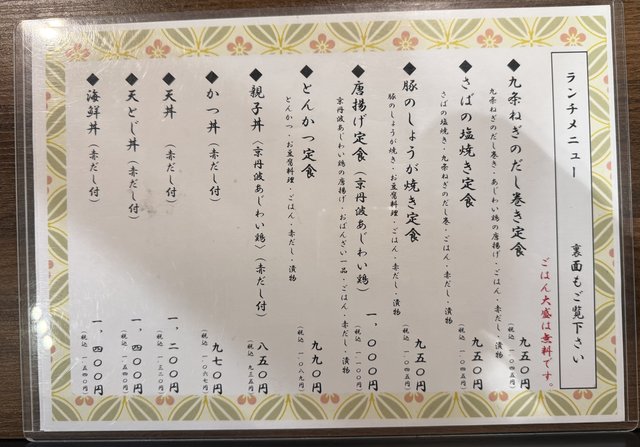 ランチメニュー　裏面もご覧下さい
ごはん大盛は無料です。
◆九条ねぎのだし巻き定食　九五〇円
九条ねぎのだし巻き・あじわい鶏の唐揚げ・ごはん・赤だし・漬物　(税込 一〇四五円)
◆さばの塩焼き定食　九五〇円
さばの塩焼き・九条ねぎのだし巻・ごはん・赤だし・漬物　(税込 一〇四五円)
◆豚のしょうが焼き定食　九五〇円
豚のしょうが焼き・お豆腐料理・ごはん・赤だし・漬物　(税込 一〇四五円)
◆唐揚げ定食（京丹波あじわい鶏）　一、〇〇〇円
京丹波あじわい鶏の唐揚げ・おばんざい一品・ごはん・赤だし・漬物　(税込 一一〇〇円)
◆とんかつ定食　九九〇円
とんかつ・お豆腐料理・ごはん・赤だし・漬物　(税込 一〇八九円)
◆親子丼（京丹波あじわい鶏）（赤だし付）　八五〇円
(税込 九三五円)
◆かつ丼（赤だし付）　九七〇円
(税込 一〇六七円)
◆天丼（赤だし付）　一、二〇〇円
(税込 一三二〇円)
◆天とじ丼（赤だし付）　一、四〇〇円
(税込 一五四〇円)
◆海鮮丼（赤だし付）　一、四〇〇円
(税込 一五四〇円)